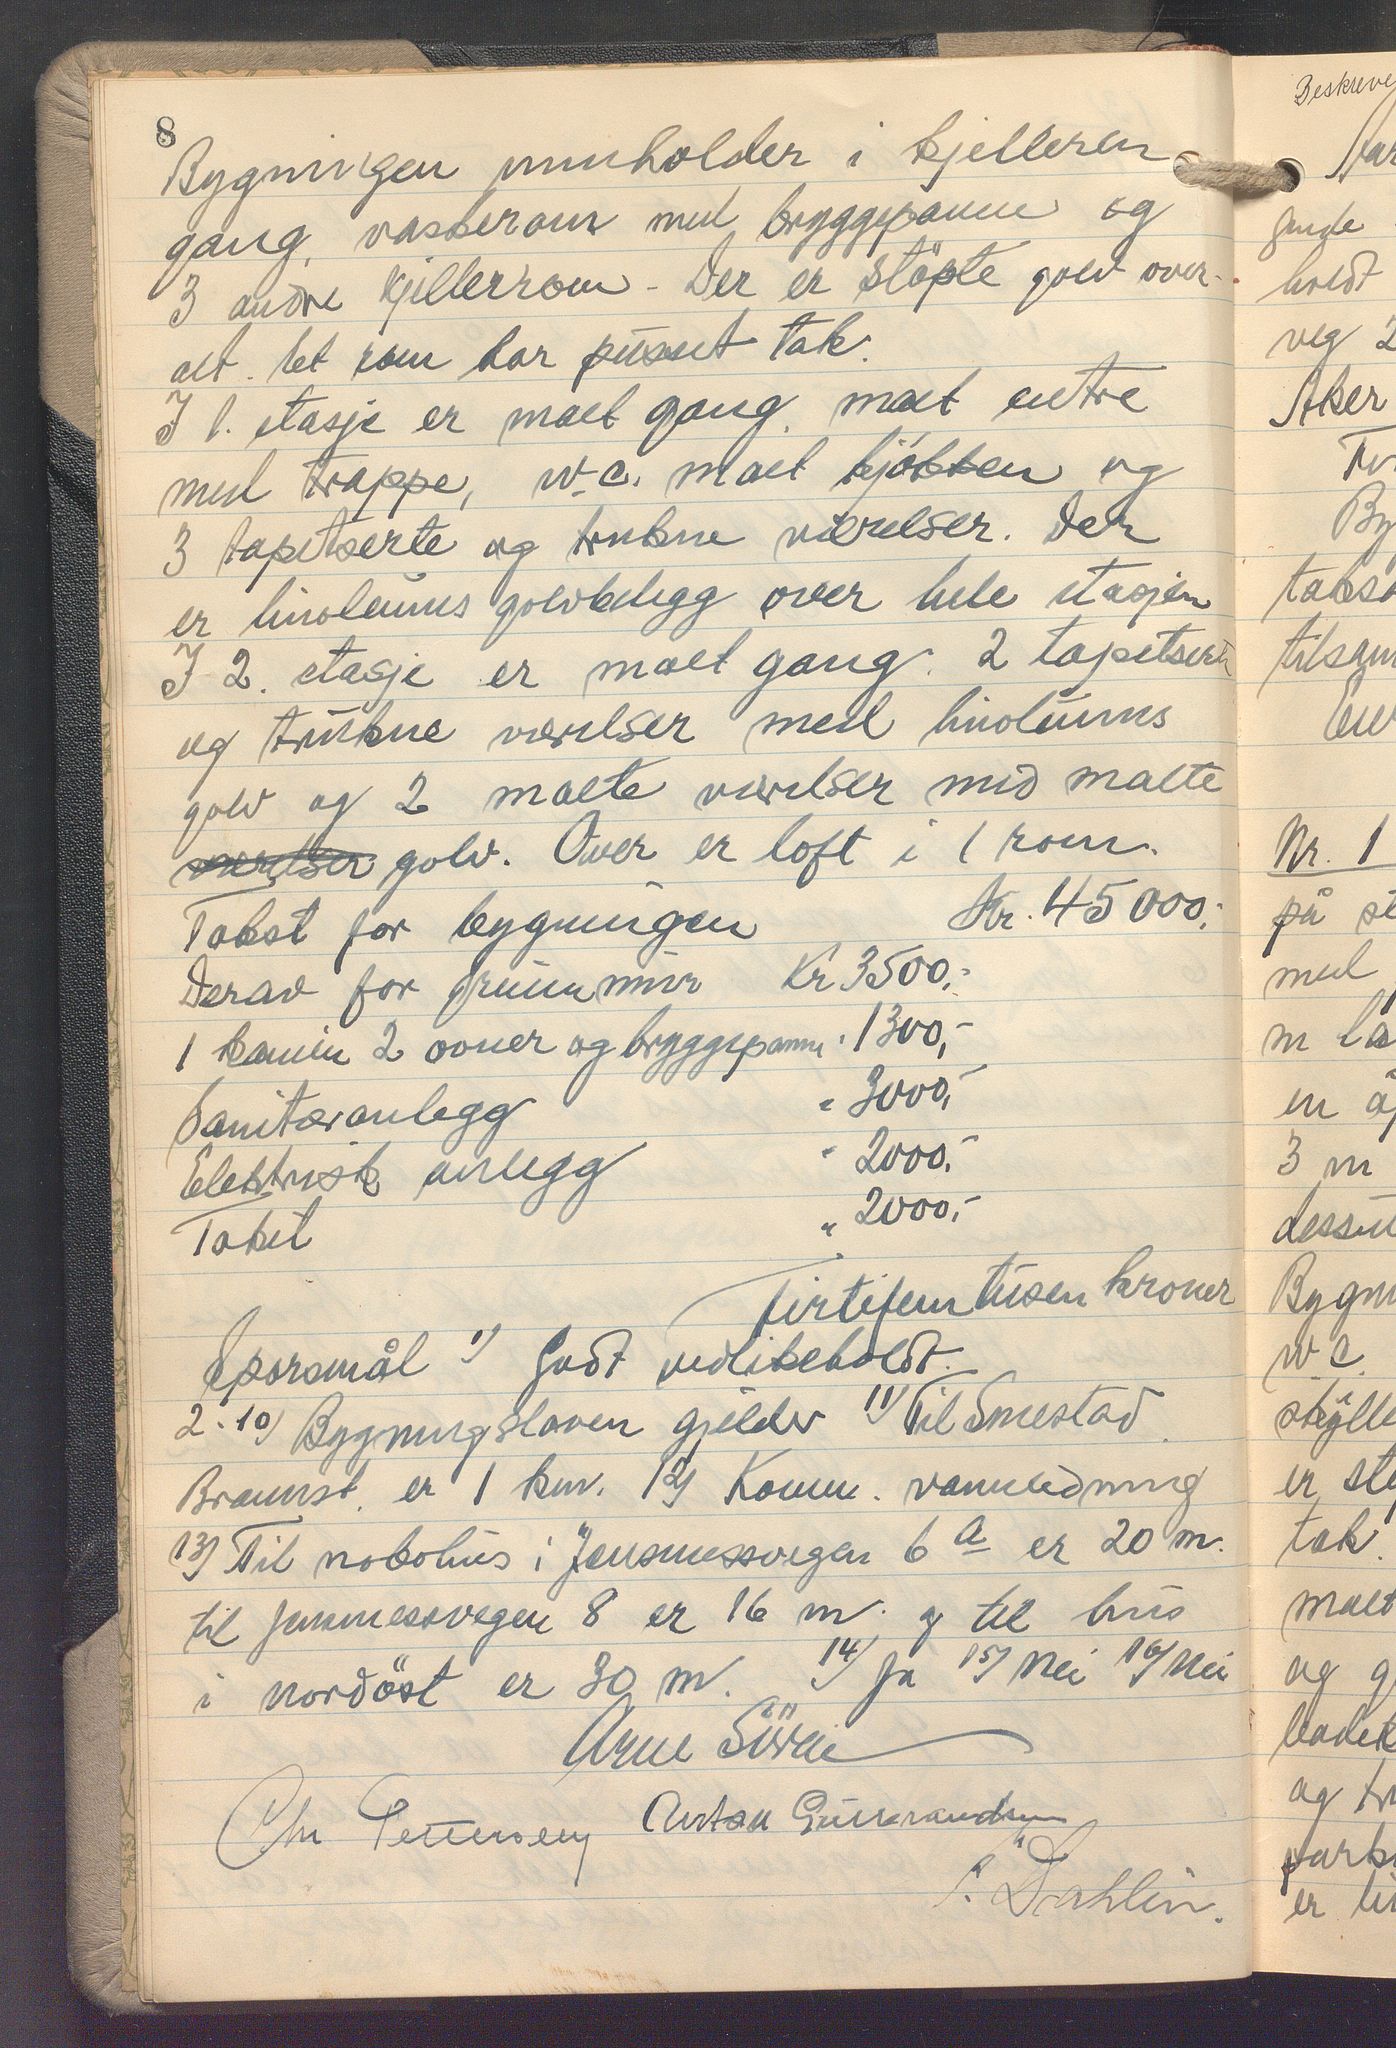 8
Bygningen innholder i kjelleren
gang, vaskerom med bryggepanne og
3 andre kjellerrom - Der er stöpte golv over-
alt. Et rom har pusset tak.
I 1. etasje er malt gang, malt entre
med trappe, w.c. malt kjökken og
3 tapetserte og trukne værelser. Der
er linoleums golvbelegg over hele etasjen
I 2. etasje er malt gang. 2 tapetserte
og trukne værelser med linoleums
golv og 2 malte værelser med malte
værelser golv. Over er loft i 1 rom.
Takst for bygningen Kr. 45000,-
Derav for grunnmur Kr 3500,-
1 kamin 2 ovner og bryggepanne " 1300,-
Sanitæranlegg " 3000,-
Elektrisk anlegg " 2000,-
Taket " 2000,-
firtifemtusen kroner
Spörsmål 1) Godt vedlikeholdt.
2-10) Bygningsloven gjelder 11) Til Smestad
Brannst. er 1 km. 12) Komm. vannledning
13) Til nabohus i Jonsmessvegen 6 a er 20 m.
til Jonsmessvegen 8 er 16 m. og til hus
i nordöst er 30 m. 14) Ja 15) Nei 16) Nei
Arne
Chr Pettersen Anton Gulbrandsen
Dahlin.
Beskreve
holdt
veg 2
Aker
By
taks
Nr. 1
på
med
en
3 m
Bygn
w.c.
er
tak.
malt
og
og
er